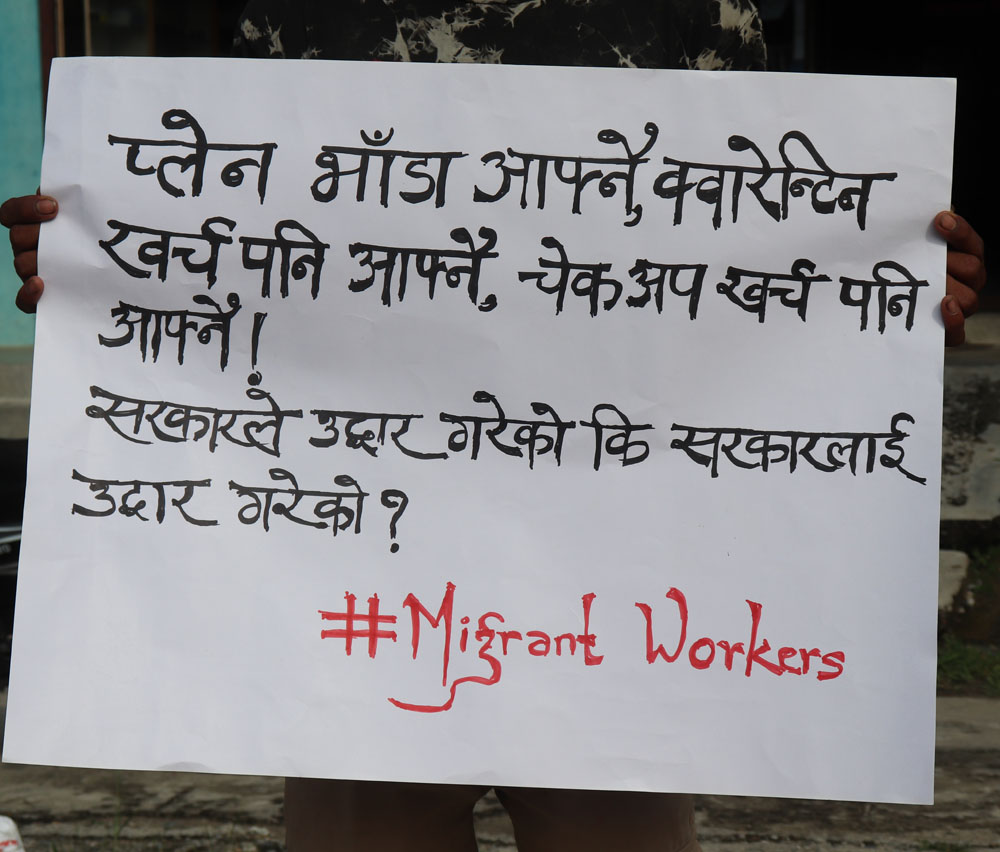 प्लेन भाँडा आफ्नै, क्वारेन्टिन
खर्च पनि आफ्नै, चेकअप खर्च पनि
आफ्नै!
सरकारले उद्दार गरेको कि सरकारलाई
उद्दार गरेको?
#Migrant Workers